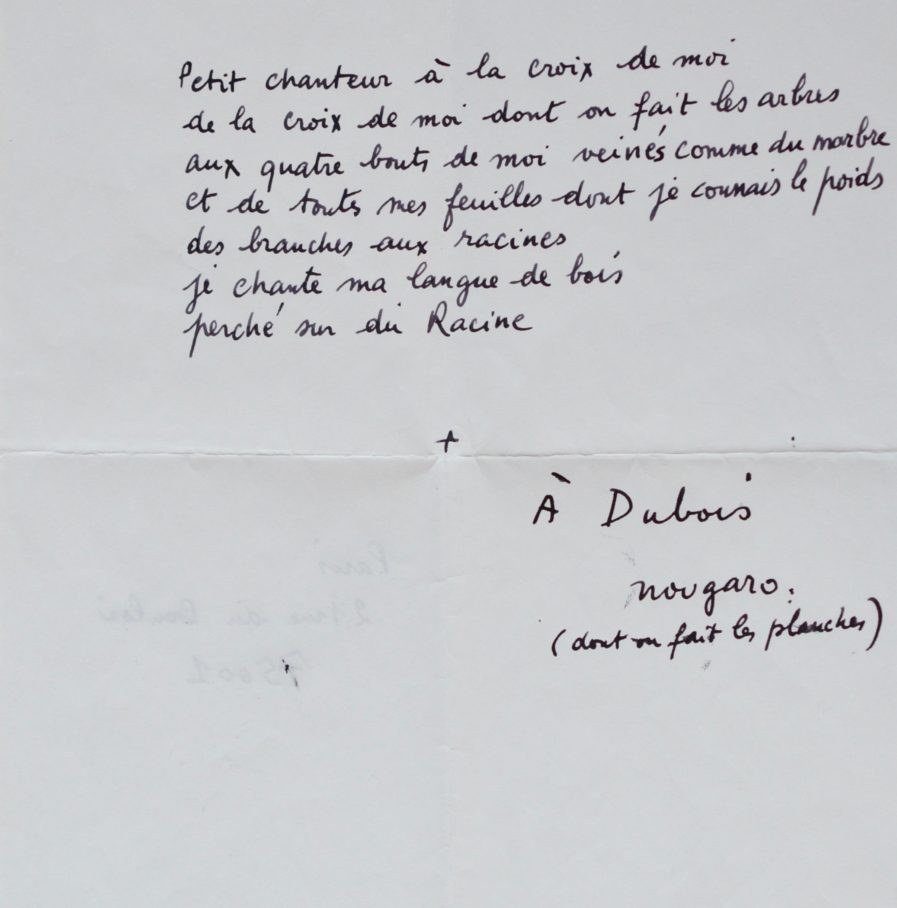 Petit chanteur à la croix de moi
de la croix de moi dont on fait les arbres
aux quatre bouts de moi veinés comme du marbre
et de toutes mes feuilles dont je connais le poids
des branches aux racines
je chante ma langue de bois
perché sur du Racine
+
À Dubois
nougaro.
(dont on fait les planches)
Paris
75001